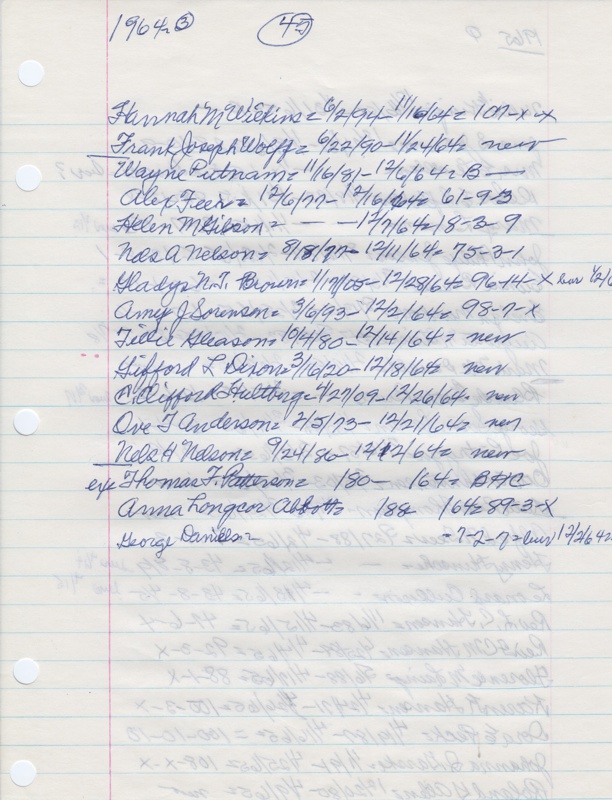 1964 ③ 45
Hannah M Wilkins = 6/2/94 - 11/16/64 = 107-x-x
Frank Joseph Wolff = 6/22/90 - 11/24/64 = new
Wayne Putnam = 11/6/81 - 12/6/64 = B —
Alex Feer = 12/6/77 - 12/16/64 = 61-9-3
Helen M Gibson = - - - 12/7/64 = 18-3-9
Nels A Nelson = 8/18/77 - 12/11/64 = 75-3-1
Gladys N.T. Brown = 1/17/05 - 12/28/64 = 96-14-x bur
Amy J Sorenson = 3/6/93 - 12/2/64 = 98-7-x
Tillie Gleason = 10/4/80 - 12/14/64 = new
Gifford L Dixon = 3/16/20 - 12/18/64 new
C. Clifford Hultberg = 4/27/09 - 12/26/64 = new
Ove T Anderson = 2/5/73 - 12/21/64 = new
Nels H Nelson = 9/24/86 - 12/12/64 = new
Thomas F. Patterson = 180 - 164 = B#C
Anna Longcor Abbott = 188 164 = 89-3-x
George Daniels = = 7-2-7 = bur 12/2/64